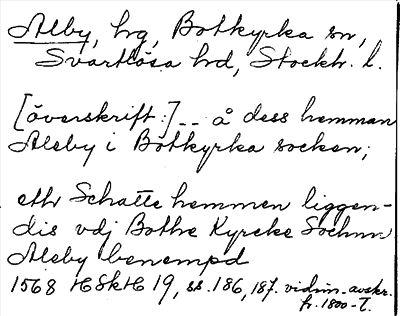 Alby, hg, Botkyrka sn,
Svartlösa hd, Stockh. l.
[överskrift:] -- å dess hemman
Aleby i Botkyrka socken;
ethr Schatte hemmen liggen-
dis vdj Bothe Kyrcke Sochnn
Aleby benempd
1568 HSkH 19, ss. 186, 187. vidim. avskr.
fr. 1800-t.